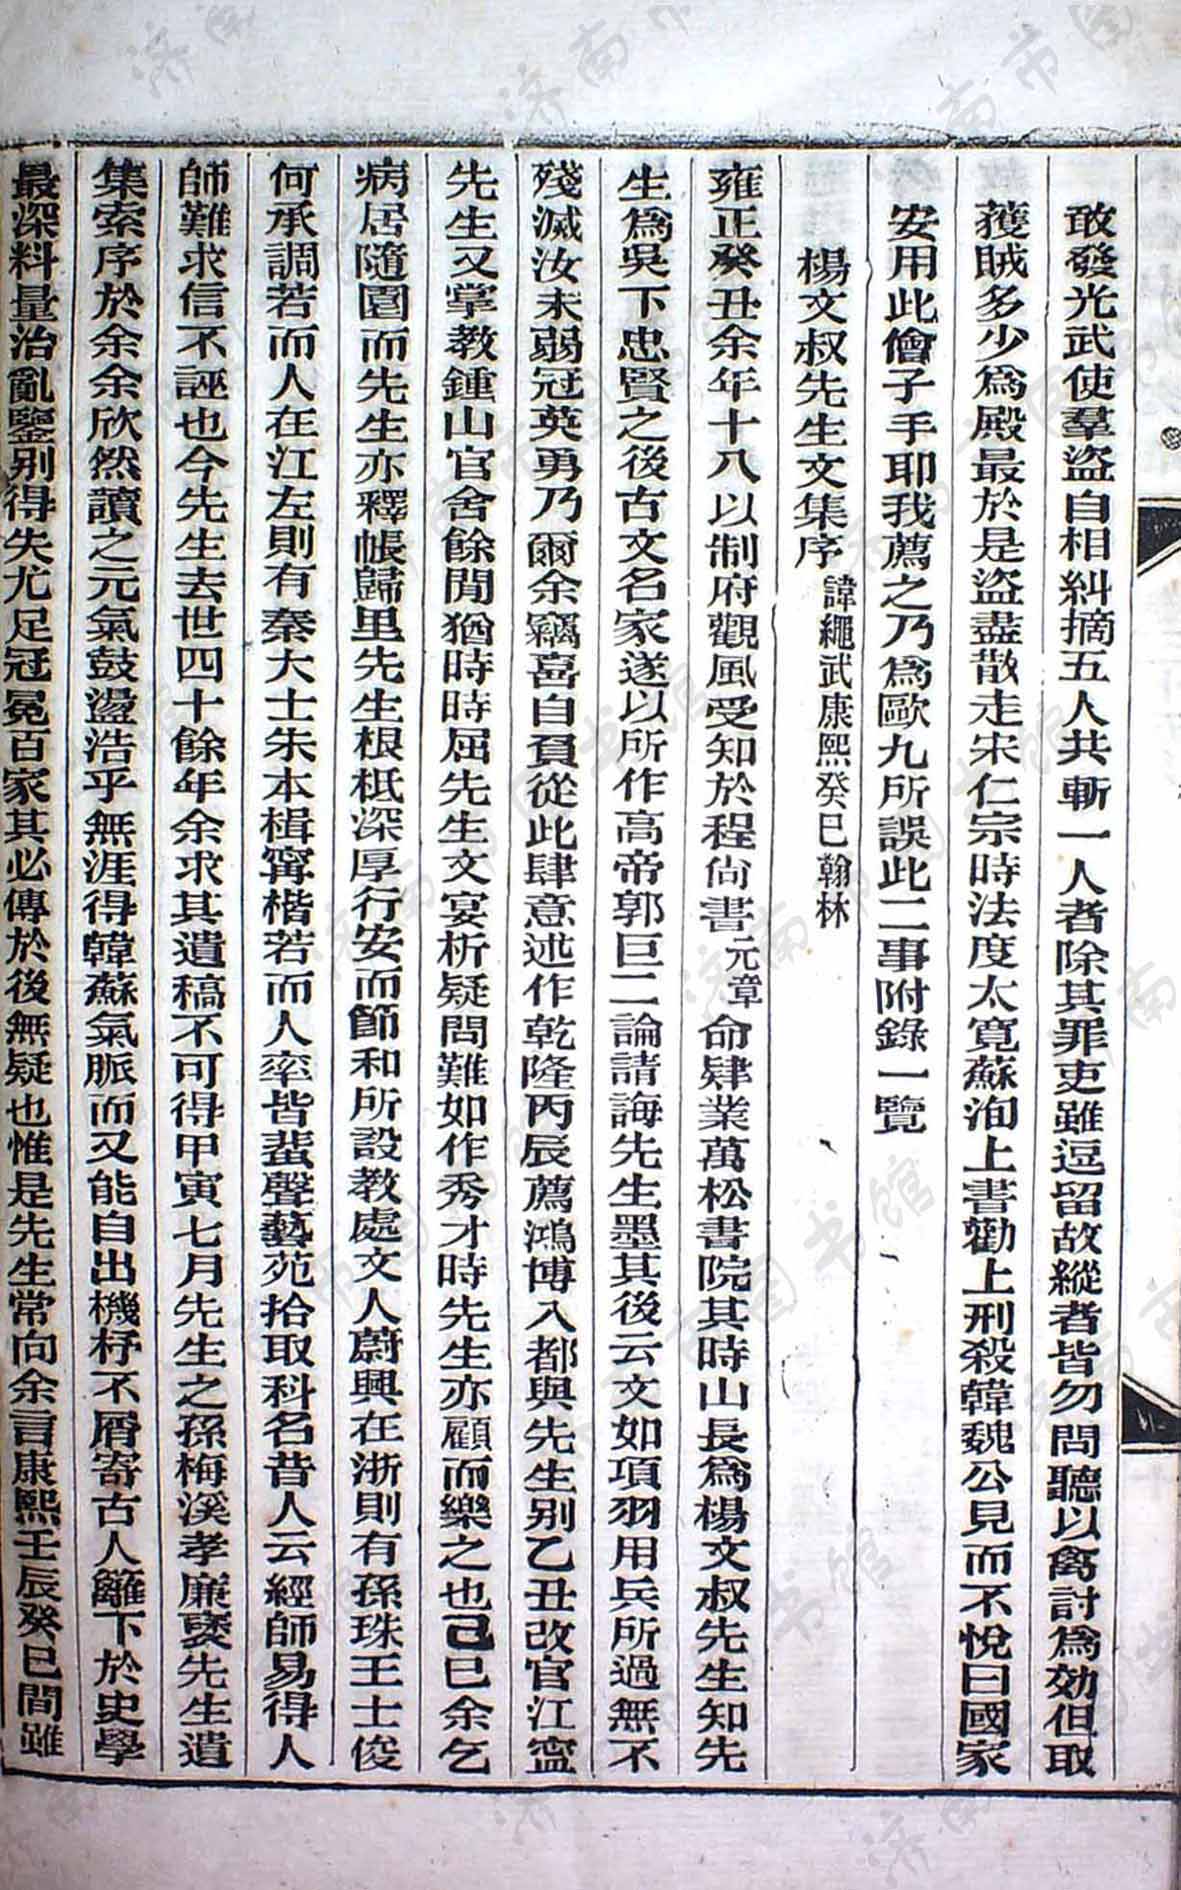 敢發光武使羣盜自相糾摘五人共斬一人者除其罪吏雖逗留故縱者皆勿問聽以禽討為効但取
獲賊多少為殿最於是盜盡散走宋仁宗時法度太寬蘇洵上書勸上刑殺韓魏公見而不悅曰國家
安用此儈子手耶我薦之乃為歐九所誤此二事附錄一覽
楊文叔先生文集序 諱繩武康熙癸巳翰林
雍正癸丑余年十八以制府觀風受知於程尚書元章命肄業萬松書院其時山長為楊文叔先生知先
生為吳下忠賢之後古文名家遂以所作高帝郭巨二論請誨先生墨其後云文如項羽用兵所過無不
殘滅汝未弱冠英勇乃爾余竊喜自負從此肆意述作乾隆丙辰薦鴻博入都與先生別乙丑改官江寗
先生又掌教鍾山官舍餘閒猶時時屈先生文宴析疑問難如作秀才時先生亦顧而樂之也己巳余乞
病居隨園而先生亦釋帳歸里先生根柢深厚行安而節和所設教處文人蔚興在浙則有孫珠王士俊
何承調若而人在江左則有秦大士朱本楫寗楷若而人率皆蜚聲藝苑拾取科名昔人云經師易得人
師難求信不誣也今先生去世四十餘年余求其遺稿不可得甲寅七月先生之孫梅溪孝廉裒先生遺
集索序於余余欣然讀之元氣鼓盪浩乎無涯得韓蘇氣脈而又能自出機杼不屑寄古人籬下於史學
最深料量治亂鑒別得失尤足冠冕百家其必傳於後無疑也惟是先生常向余言康熙壬辰癸巳間雖